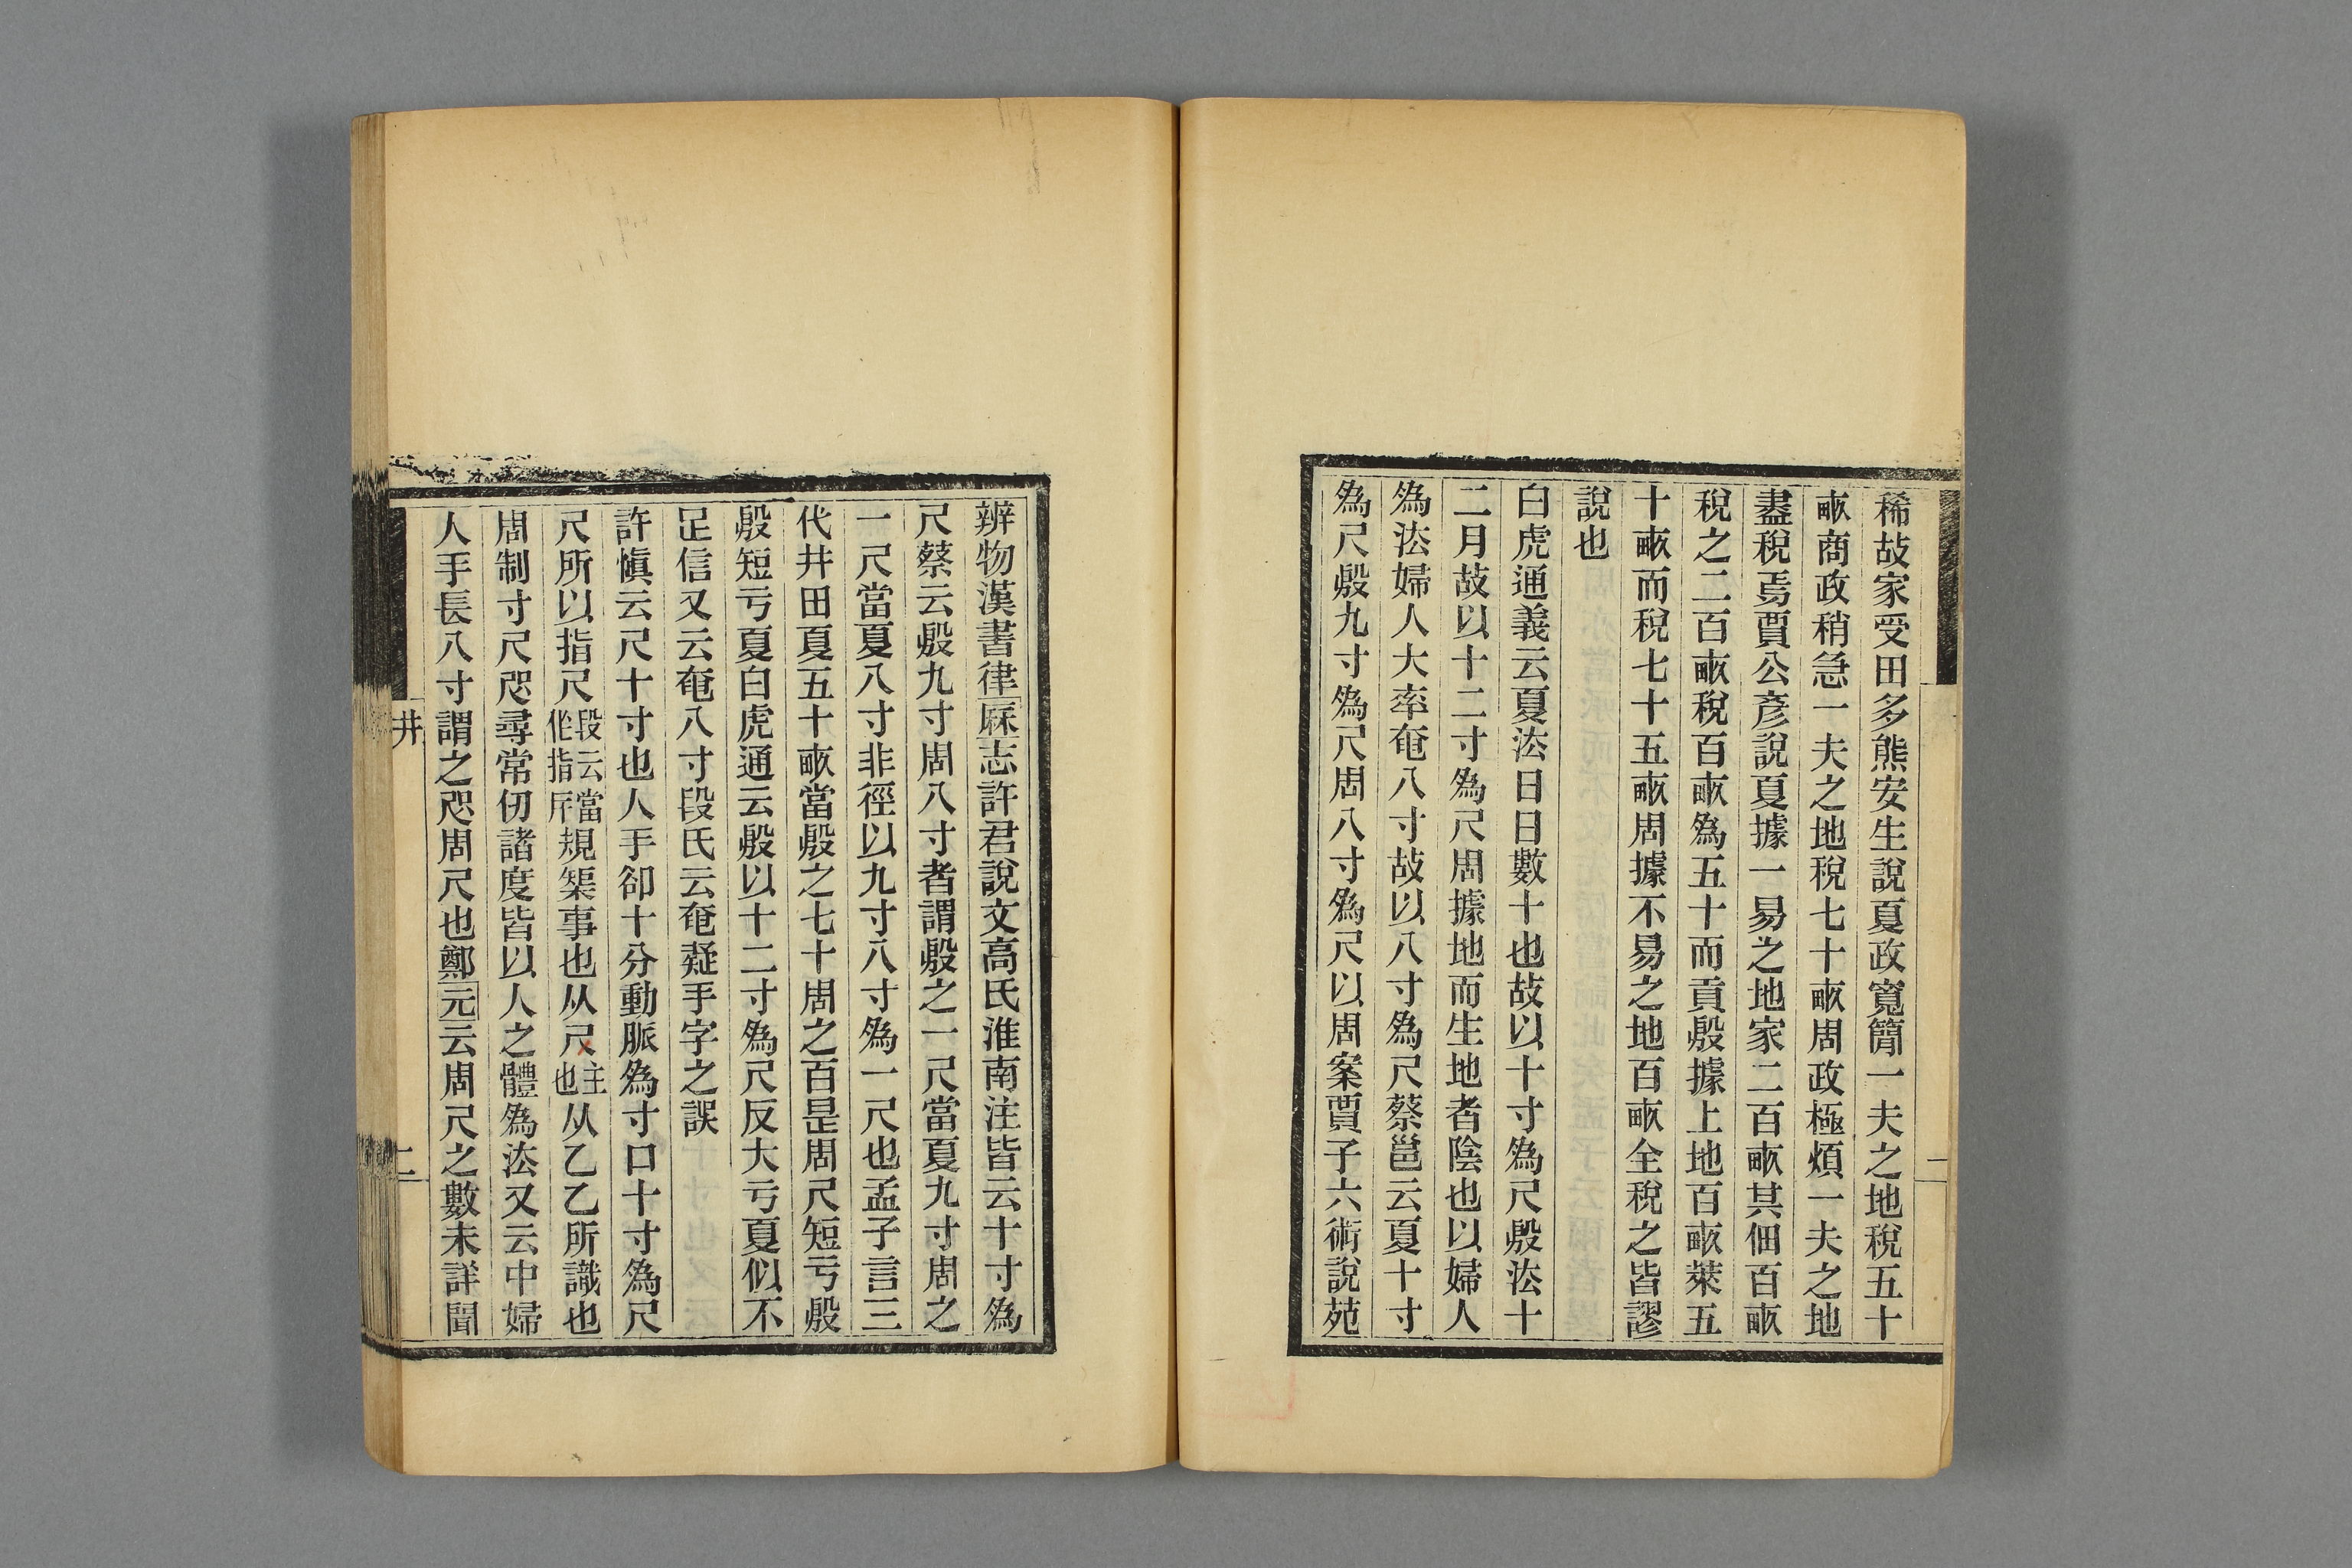 稀故家受田多熊安生說夏政寬簡一夫之地稅五十
畞商政稍急一夫之地稅七十畞周政極煩一夫之地
盡稅焉賈公彥說夏據一易之地家二百畞其佃百畞
稅之二百畞稅百畞爲五十而貢殷據上地百畞萊五
十畞而稅七十五畞周據不易之地百畞全稅之皆謬
說也
白虎通義云夏法日日數十也故以十寸爲尺殷法十
二月故以十二寸爲尺周據地而生地者陰也以婦人
爲法婦人大率奄八寸故以八寸爲尺蔡邕云夏十寸
爲尺殷九寸爲尺周八寸爲尺以周案賈子六術說苑
二
辨物漢書律厤志許君說文高氏淮南注皆云十寸爲
尺蔡云殷九寸周八寸者謂殷之一尺當夏九寸周之
一尺當夏八寸非徑以九寸八寸爲一尺也孟子言三
代井田夏五十畞當殷之七十周之百是周尺短亏殷
殷短亏夏白虎通云殷以十二寸爲尺反大亏夏似不
足信又云奄八寸段氏云奄疑手字之誤
許愼云尺十寸也人手卻十分動脈爲寸口十寸爲尺
尺所以指尺段云當作指㡿規榘事也从尸主也从乙乙所識也
周制寸尺咫尋常仞諸度皆以人之體爲法又云中婦
人手長八寸謂之咫周尺也鄭元云周尺之數未詳聞
井
二